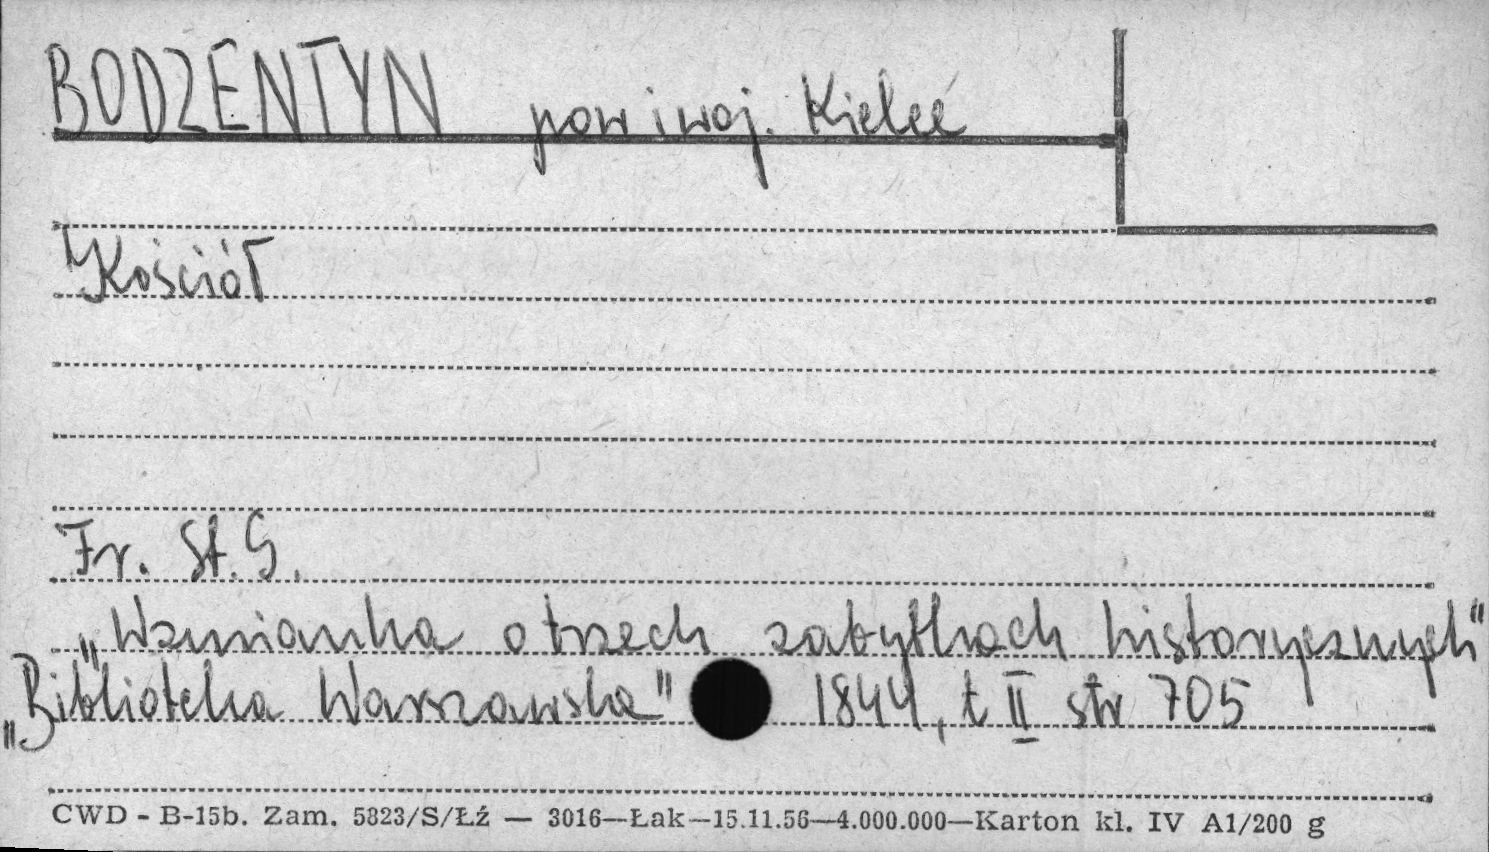 BODZENTYN pow i woj. Kielce
Kościół
Fr. St. G.
„Wzmianka o trzech zabytkach historycznych"
„Biblioteka Warszawska" 1844, t II str 705
CWD - B-15b. Zam. 5823/S/Łź — 3016—Łak—15.11.56—4.000.000—Karton kl. IV A1/200 g